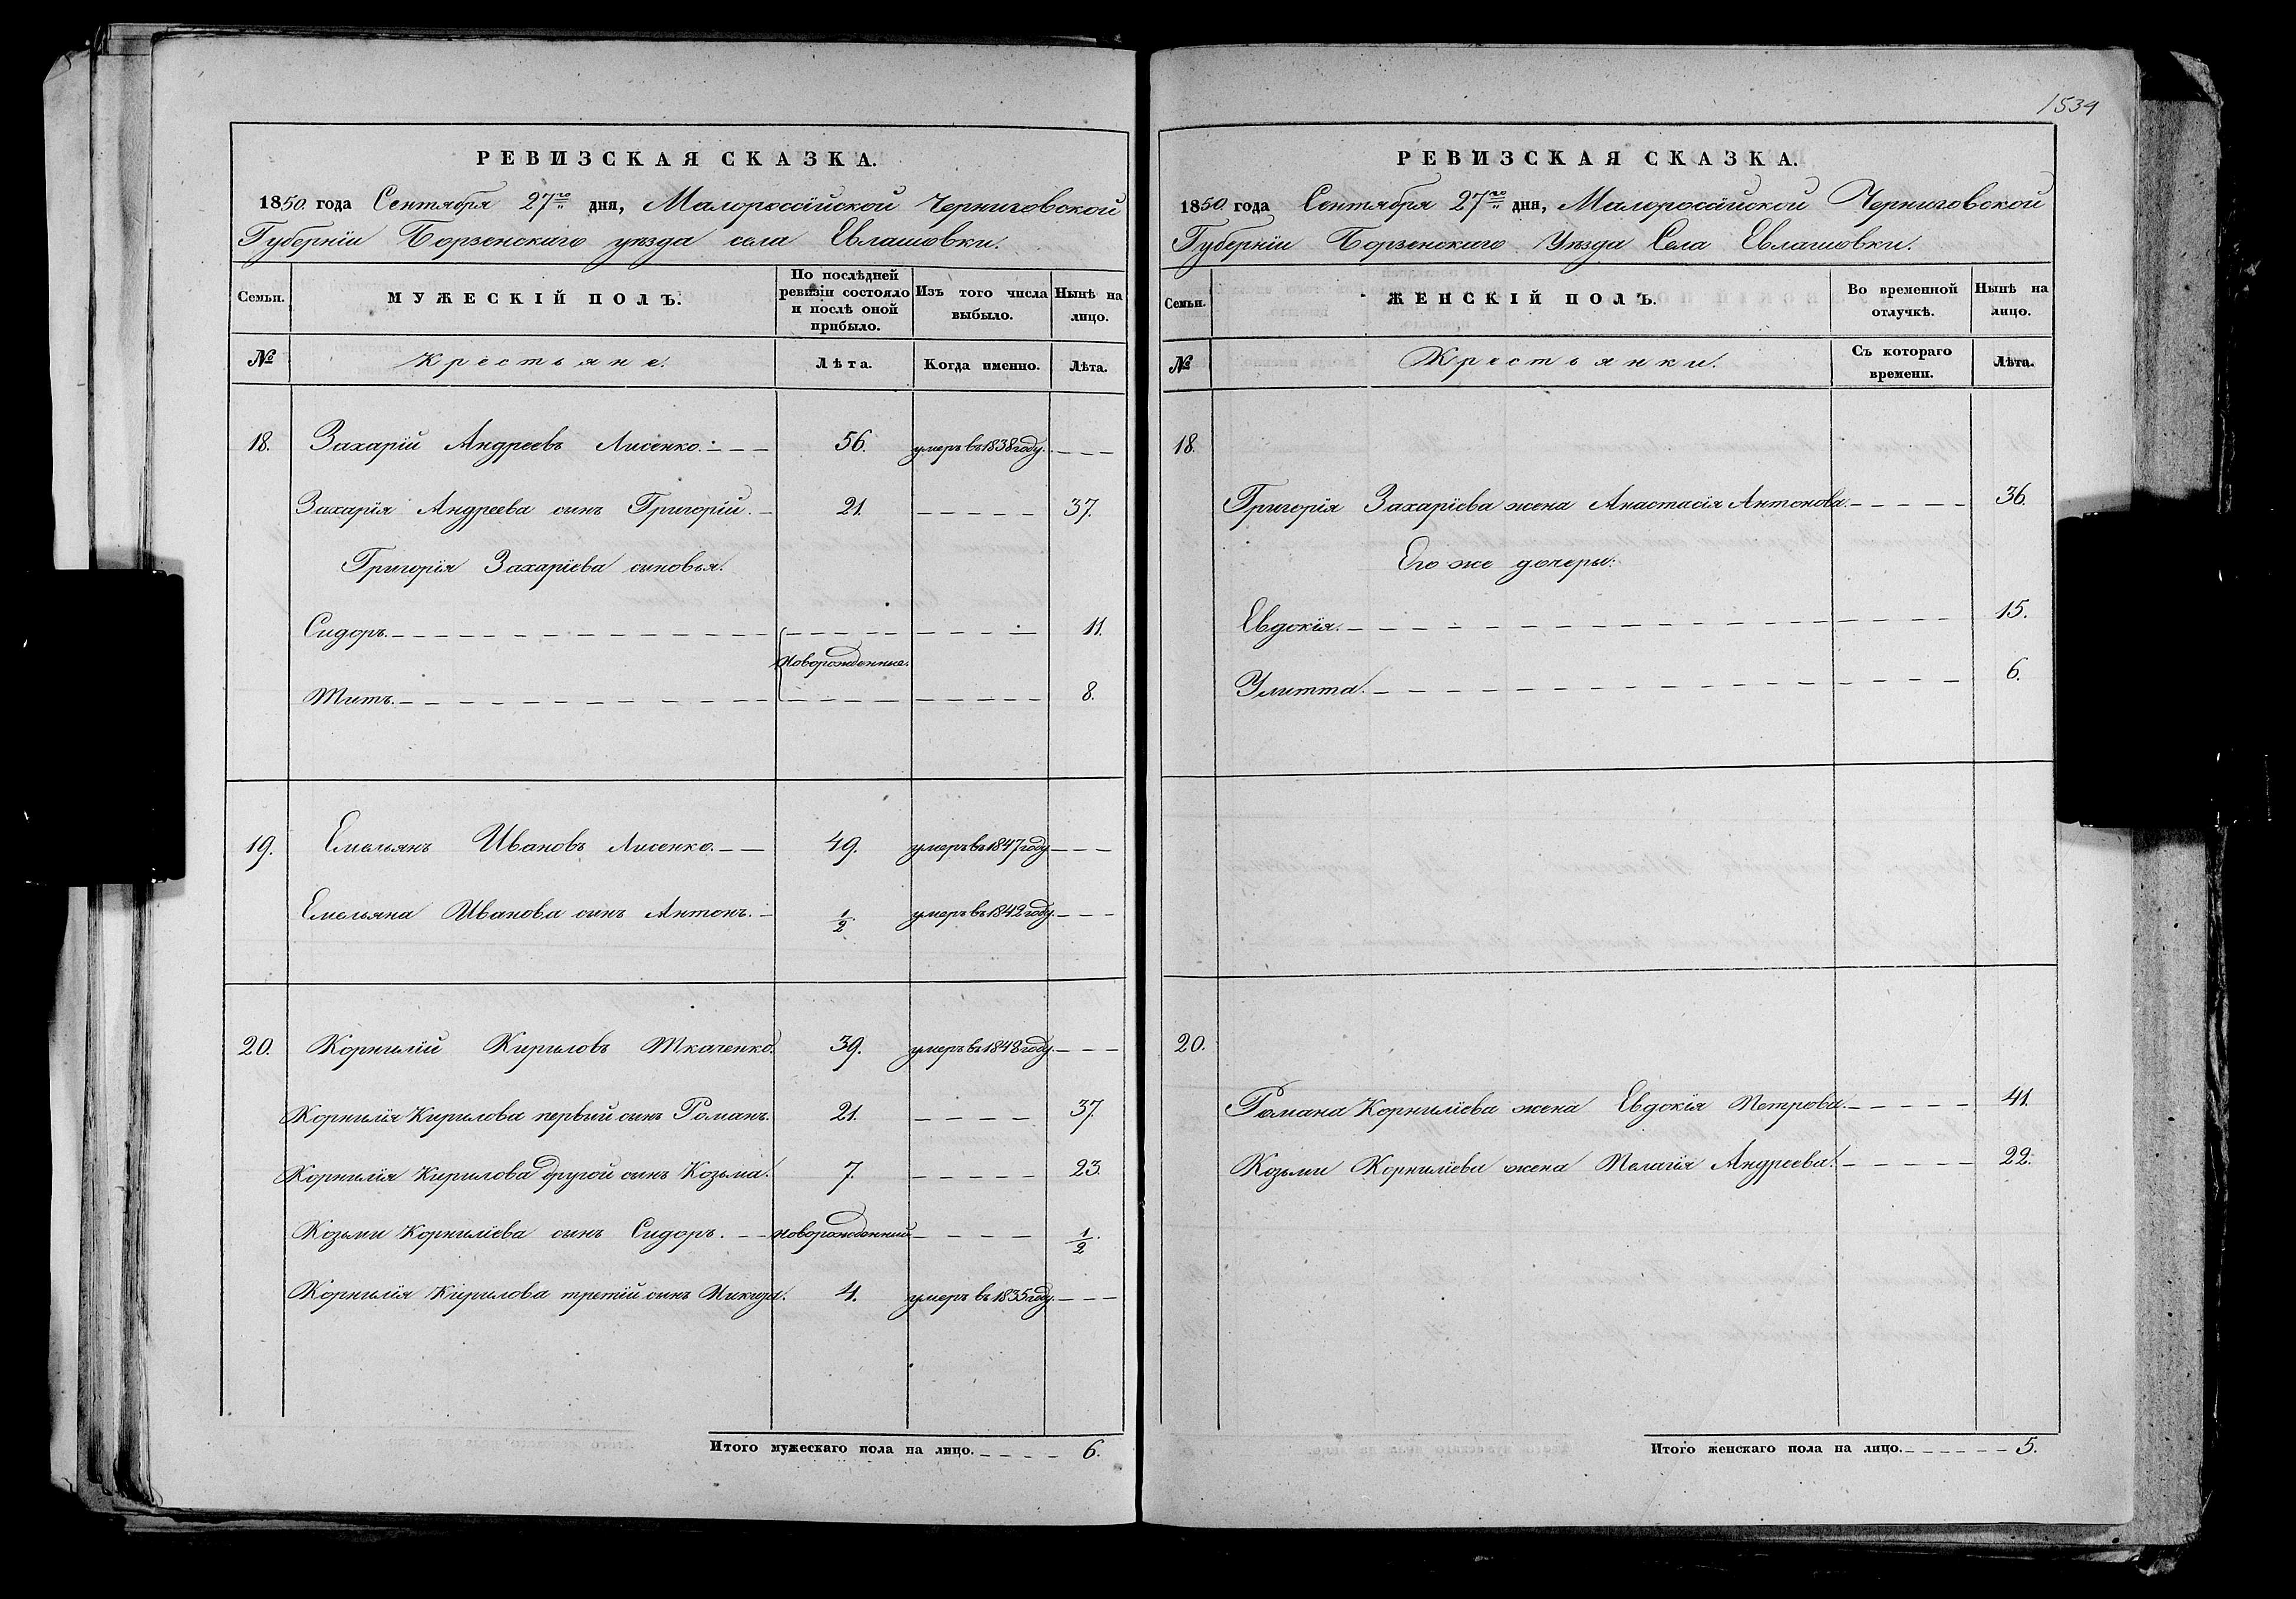 РЕВИЗСКАЯ СКАЗКА.
1850. года Сентября 27го дня, Малороссійской Черниговской
Губерніи Борзенскаго уѣзда села Евлашовки.
Семьи.
МУЖЕСКІЙ ПОЛЪ.
По послѣдней ревизіи состояло и послѣ оной прибыло.
Изъ того числа выбыло.
Нынѣ на лицо.
№
Крестьяне.
Лѣта.
Когда именно.
Лѣта.
18. Захарій Андреевъ Лисенко. 56. умеръ въ 1838 году.
Захарія Андреева сынъ Григорій. 21. 37.
Григорія Захаріева сыновья.
Сидоръ. 11.
Новорожденные.
Титъ. 8.
19. Емельянъ Ивановъ Лисенко. 49. умеръ въ 1847 году
Емельяна Иванова сынъ Антонъ. 1/2. умеръ въ 1842 году.
20. Корнилій Кириловъ Ткаченко. 39. умеръ въ 1848 году.
Корнилія Кирилова первый сынъ Романъ. 21. 37.
Корнилія Кирилова другой сынъ Козьма. 7. 23.
Козьми Корниліева сынъ Сидоръ. новорожденный 1/2.
Корнилія Кирилова третій сынъ 4. умеръ въ 1835 году.
Итого мужескаго пола на лицо. 6.
1534
РЕВИЗСКАЯ СКАЗКА.
1850. года Сентября 27го дня, Малоросійской Черниговской
Губерніи Борзенскаго Уѣзда Села Евлашовки.
Семьи.
ЖЕНСКІЙ ПОЛЪ.
Во временной отлучкѣ.
Нынѣ на лицо.
№
Крестьянки.
Съ котораго времени.
Лѣта.
18.
Григорія Захаріева жена Анастасія Антонова. 36.
Его же дочеры:
Евдокія. 15.
Улитта. 6.
20.
Романа Корниліева жена Евдокія Петрова. 41.
Козьми Корниліева жена Пелагія Андреева. 22.
Итого женскаго пола на лицо. 5.